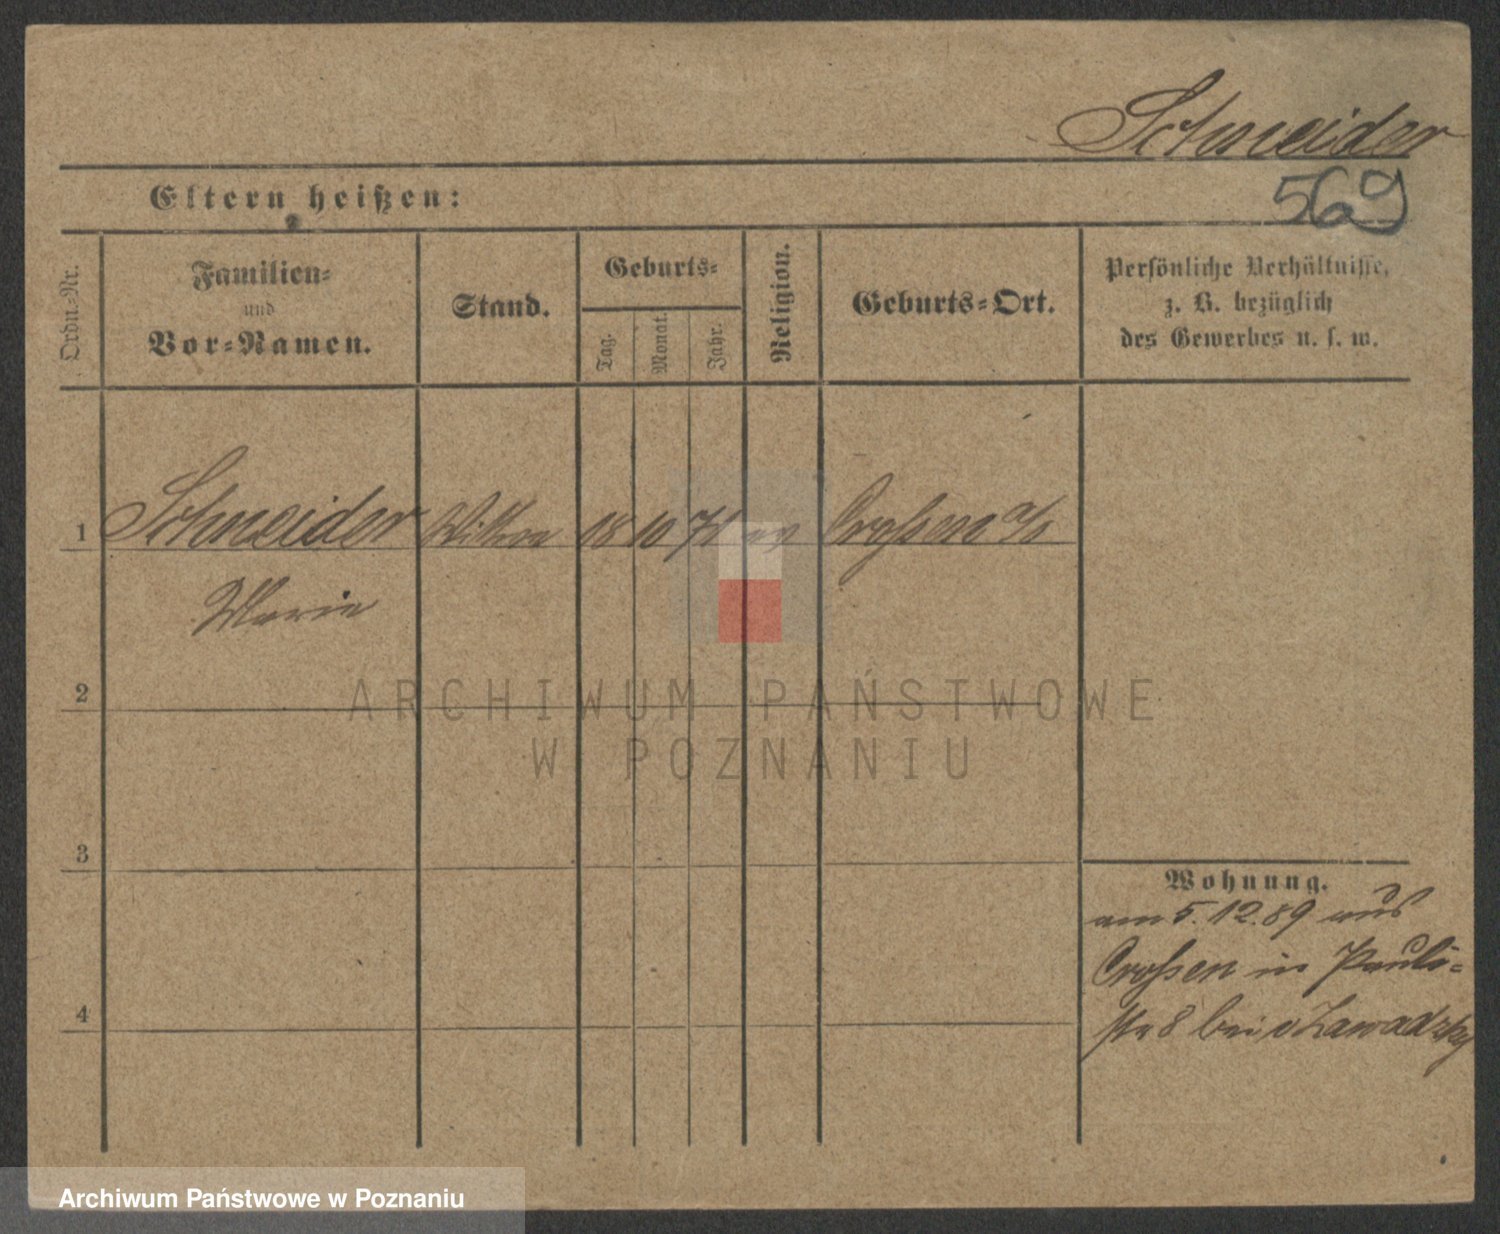 Schneider
569
Eltern heißen:
Ordn.-Nr.
Familien-
und
Vor-Namen.
Stand.
Geburts-
Tag.
Monat.
Jahr.
Religion.
Geburts-Ort.
Persönliche Verhältnisse,
z. B. bezüglich
des Gewerbes u. s. w.
1 Schneider 18 10 71 ev Crossen a/O
Marie
2
ARCHIWUM PAŃSTWOWE
W POZNANIU
3
Wohnung.
am 5.12.89 aus
Crossen in Pauli-
str 8 bei v Zawadzky
4
Archiwum Państwowe w Poznaniu